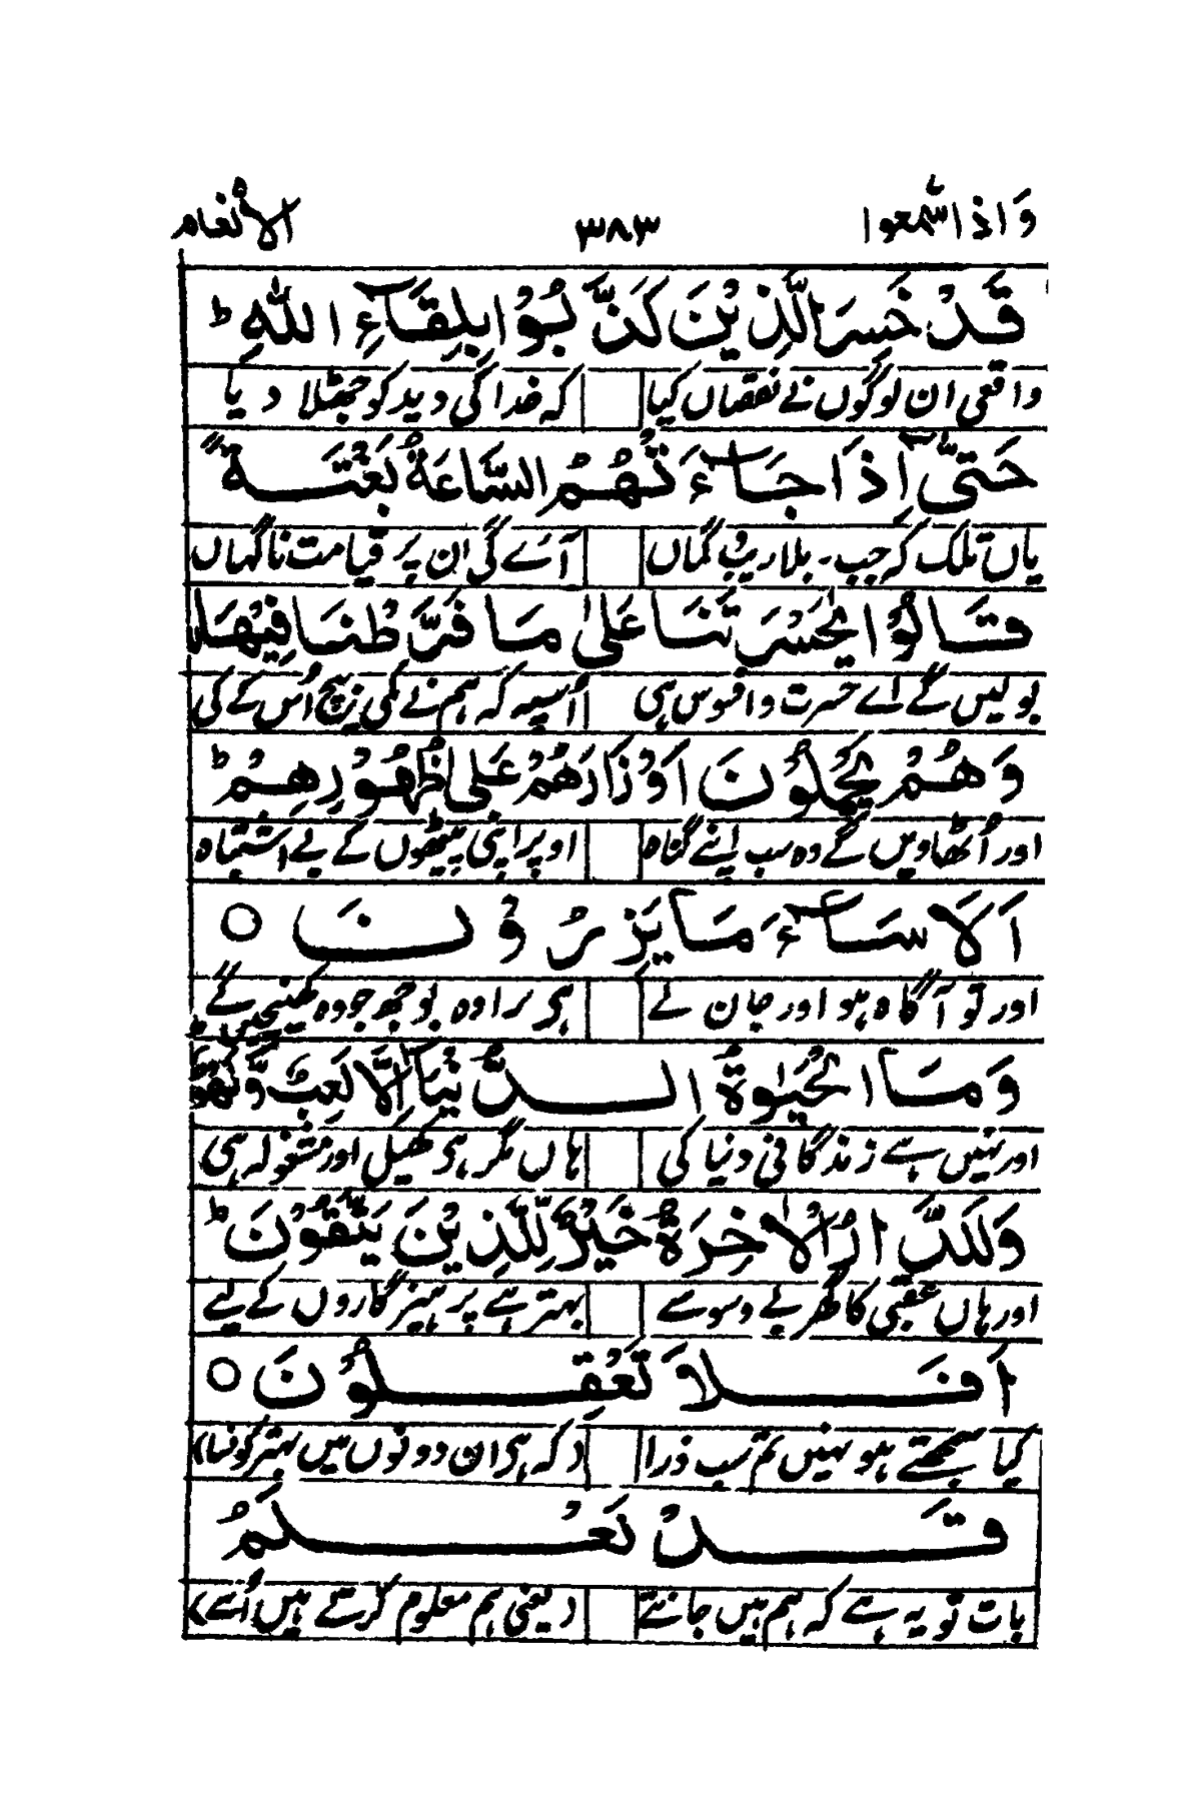 وَاِذَا سَمِعُوا ۳۸۳ الْاَنْعَام
قَدْ خَسِرَ الَّذِيْنَ كَذَّبُوْا بِلِقَآءِ اللّٰهِ ؕ
واقعی ان لوگوں نے نقصاں کیا کہ خدا کی دید کو جھٹلا دیا
حَتّٰۤى اِذَا جَآءَتْهُمُ السَّاعَةُ بَغْتَةً
یاں تلک کہ جب۔ بلا ریب و گماں آئے گی ان پر قیامت ناگہاں
قَالُوْا يٰحَسْرَتَنَا عَلٰى مَا فَرَّطْنَا فِيْهَا ۙ
بولیں گے اے حسرت و افسوس ہی اُسپہ کہ ہم نے کمی بیچ اُس کے کی
وَهُمْ يَحْمِلُوْنَ اَوْزَارَهُمْ عَلٰى ظُهُوْرِهِمْ ؕ
اور اُٹھاویں گے وہ سب اپنے گناہ اوپر اپنی پیٹھوں کے بے اشتباہ
اَلَا سَآءَ مَا يَزِرُوْنَ ○
اور تو آگاہ ہو اور جان لے ہی برا وہ بوجھ جو وہ کھینچیں گے
وَمَا الْحَيٰوةُ الدُّنْيَاۤ اِلَّا لَعِبٌ وَّلَهْوٌ ؕ
اور نہیں ہے زندگانی دنیا کی ہاں مگر ہی کھیل اور مشغولہ ہی
وَلَلدَّارُ الْاٰخِرَةُ خَيْرٌ لِّلَّذِيْنَ يَتَّقُوْنَ ؕ
اور ہاں عقبیٰ کا گھر بے وسوسے بہتر ہے پرہیزگاروں کے لیے
اَفَلَا تَعْقِلُوْنَ ○
کیا سمجھتے ہو نہیں تم سب ذرا (کہ ہی ان دونوں میں بہتر کونسا)
قَدْ نَعْلَمُ
بات تو یہ ہے کہ ہم ہیں جانتے (یعنی ہم معلوم کرتے ہیں اُسے)